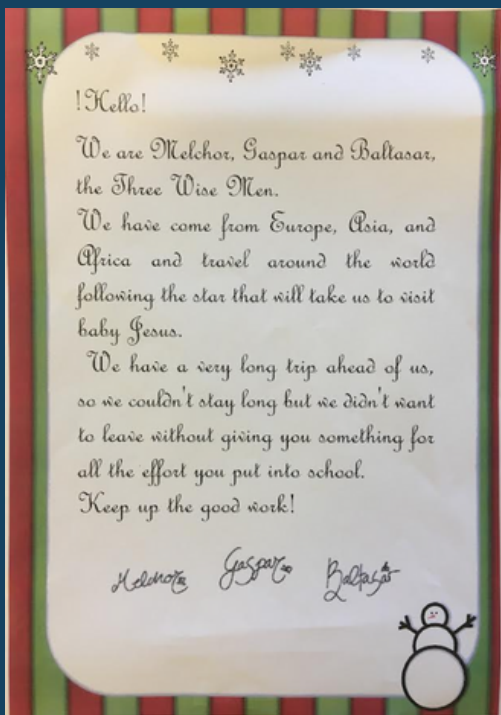 !Hello!
We are Melchor, Gaspar and Baltasar,
the Three Wise Men.
We have come from Europe, Asia, and
Africa and travel around the world
following the star that will take us to visit
baby Jesus.
We have a very long trip ahead of us,
so we couldn't stay long but we didn't want
to leave without giving you something for
all the effort you put into school.
Keep up the good work!
Melchor Gaspar Baltasar